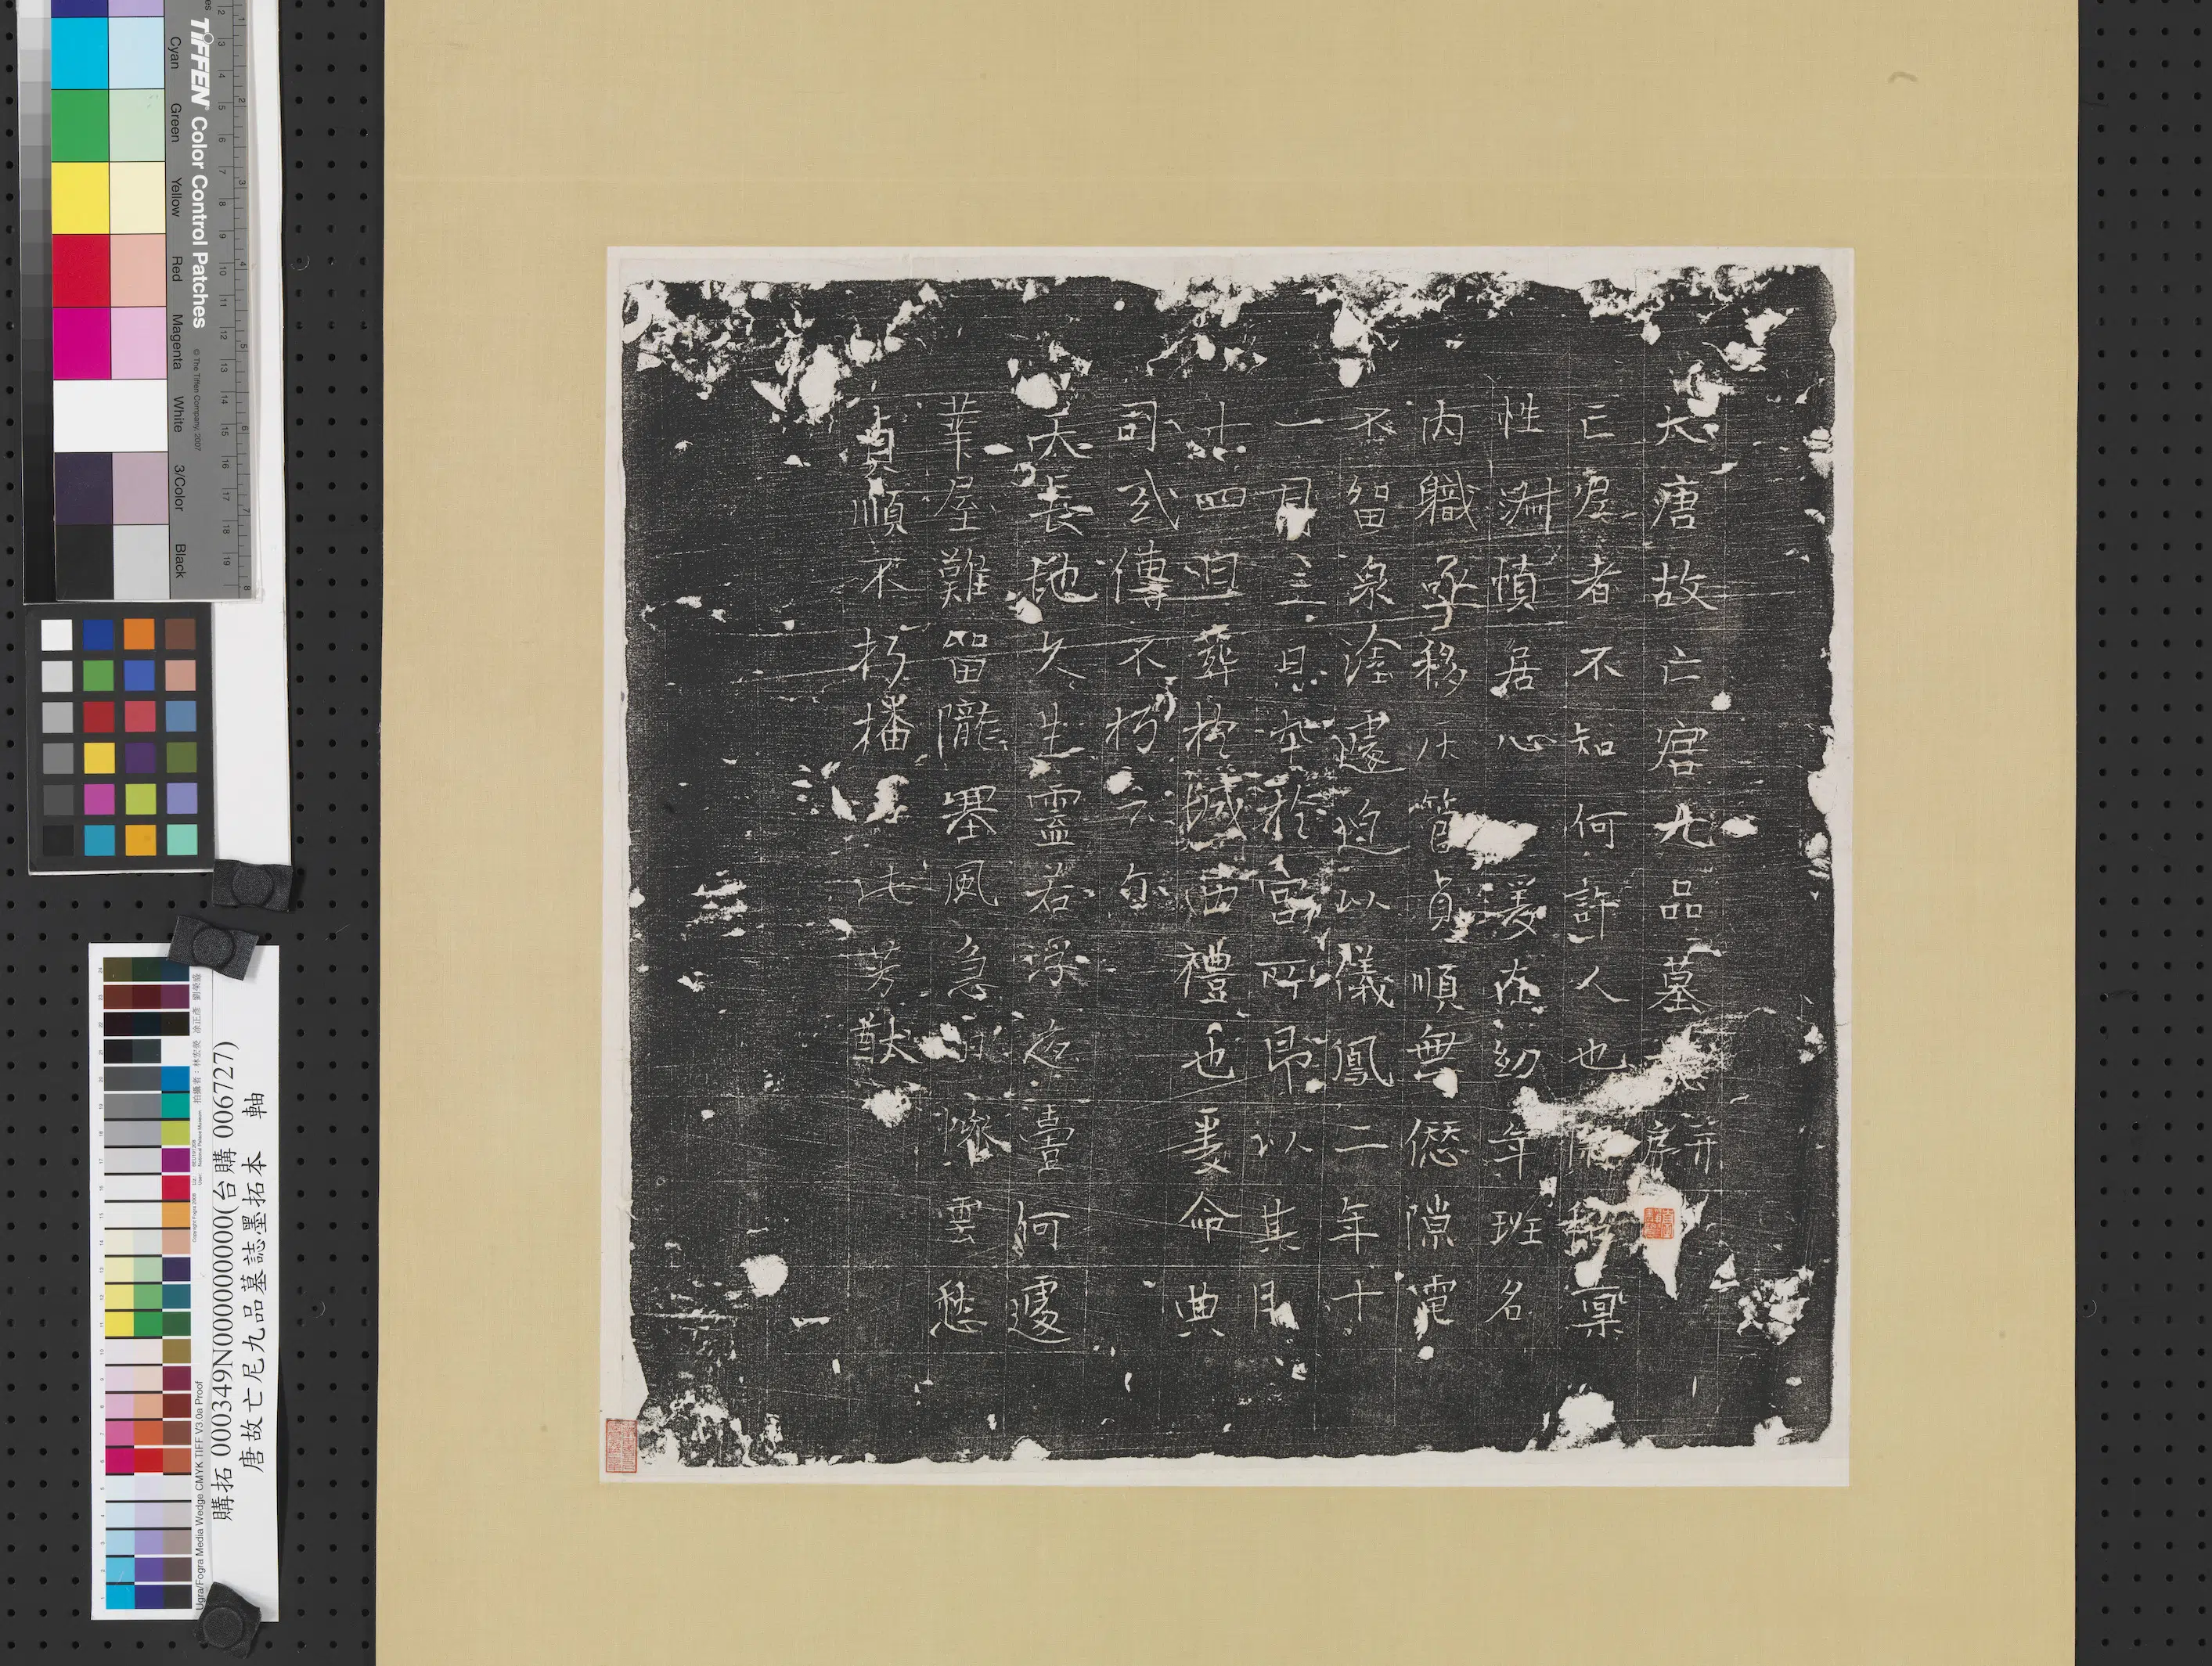 大唐故亡宮九品墓誌并序
亡宮者不知何許人也 稟
性淵慎居心 媛在幼年班名
內職承移 管貞順無愆隙電
不留泉淦遽迫以儀鳳二年十
一月三日卒於宮所即以其月
廿四日葬於城西禮也爰命典
司式傳不朽云尔
天長地久生靈若浮夜臺何遽
葉屋難留隴塞風急 慘雲愁
貞順不朽播 芳猷
TIFFEN Color Control Patches
© The Tiffen Company, 2007
Cyan Green Yellow Red Magenta White 3/Color Black
購拓000349N000000000(台購006727)
唐故亡尼九品墓誌墨拓本 軸
Ugra/Fogra Media Wedge CMYK TIFF V3.0a Proof